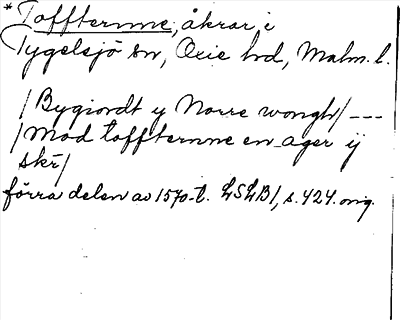 *Toffternne, åkrar i
Tygelsjö sn, Oxie hd, Malm. l.
/Bygiordt y Norre wongh/ ---
/Mod toffternne en ager ij
skr/
förra delen av 1570-t. LSLB1, s. 424. orig.